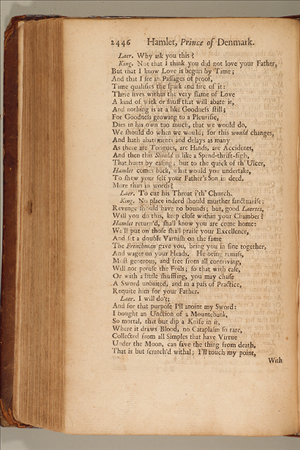 2446 Hamlet, Prince of Denmark.
Laer. Why ask you this?
King. Not that I think you did not love your Father,
But that I know Love is begun by Time;
And that I see in Passages of proof,
Time qualifies the spark and fire of it:
There lives within the very flame of Love
A kind of wick or snuff that will abate it,
And nothing is at a like Goodness still;
For Goodness growing to a Pleurisie,
Dies in his own too much, that we would do,
We should do when we would; for this would changes,
And hath abatements and delays as many
As there are Tongues, are Hands, are Accidents,
And then this Should is like a Spend-thrift-sigh,
That hurts by easing; but to the quick of th' Ulcer,
Hamlet comes back, what would you undertake,
To shew your self your Father's Son in deed,
More than in words?
Laer. To cut his Throat i'th' Church.
King. No place indeed should murther sanctuarise;
Revenge should have no bounds; but, good Laertes,
Will you do this, keep close within your Chamber?
Hamlet return'd, shall know you are come home:
We'll put on those shall praise your Excellence,
And set a double Varnish on the fame
The Frenchman gave you, bring you in fine together,
And wager on your Heads. He being remiss,
Most generous, and free from all contriving,
Will not peruse the Foils; so that with ease,
Or with a little shuffling, you may chuse
A Sword unbated, and in a pass of Practice,
Requite him for your Father.
Laer. I will do't;
And for that purpose I'll anoint my Sword:
I bought an Unction of a Mountebank,
So mortal, that but dip a Knife in it,
Where it draws Blood, no Cataplasm so rare,
Collected from all Simples that have Virtue
Under the Moon, can save the thing from death,
That is but scratch'd withal; I'll touch my point,
With